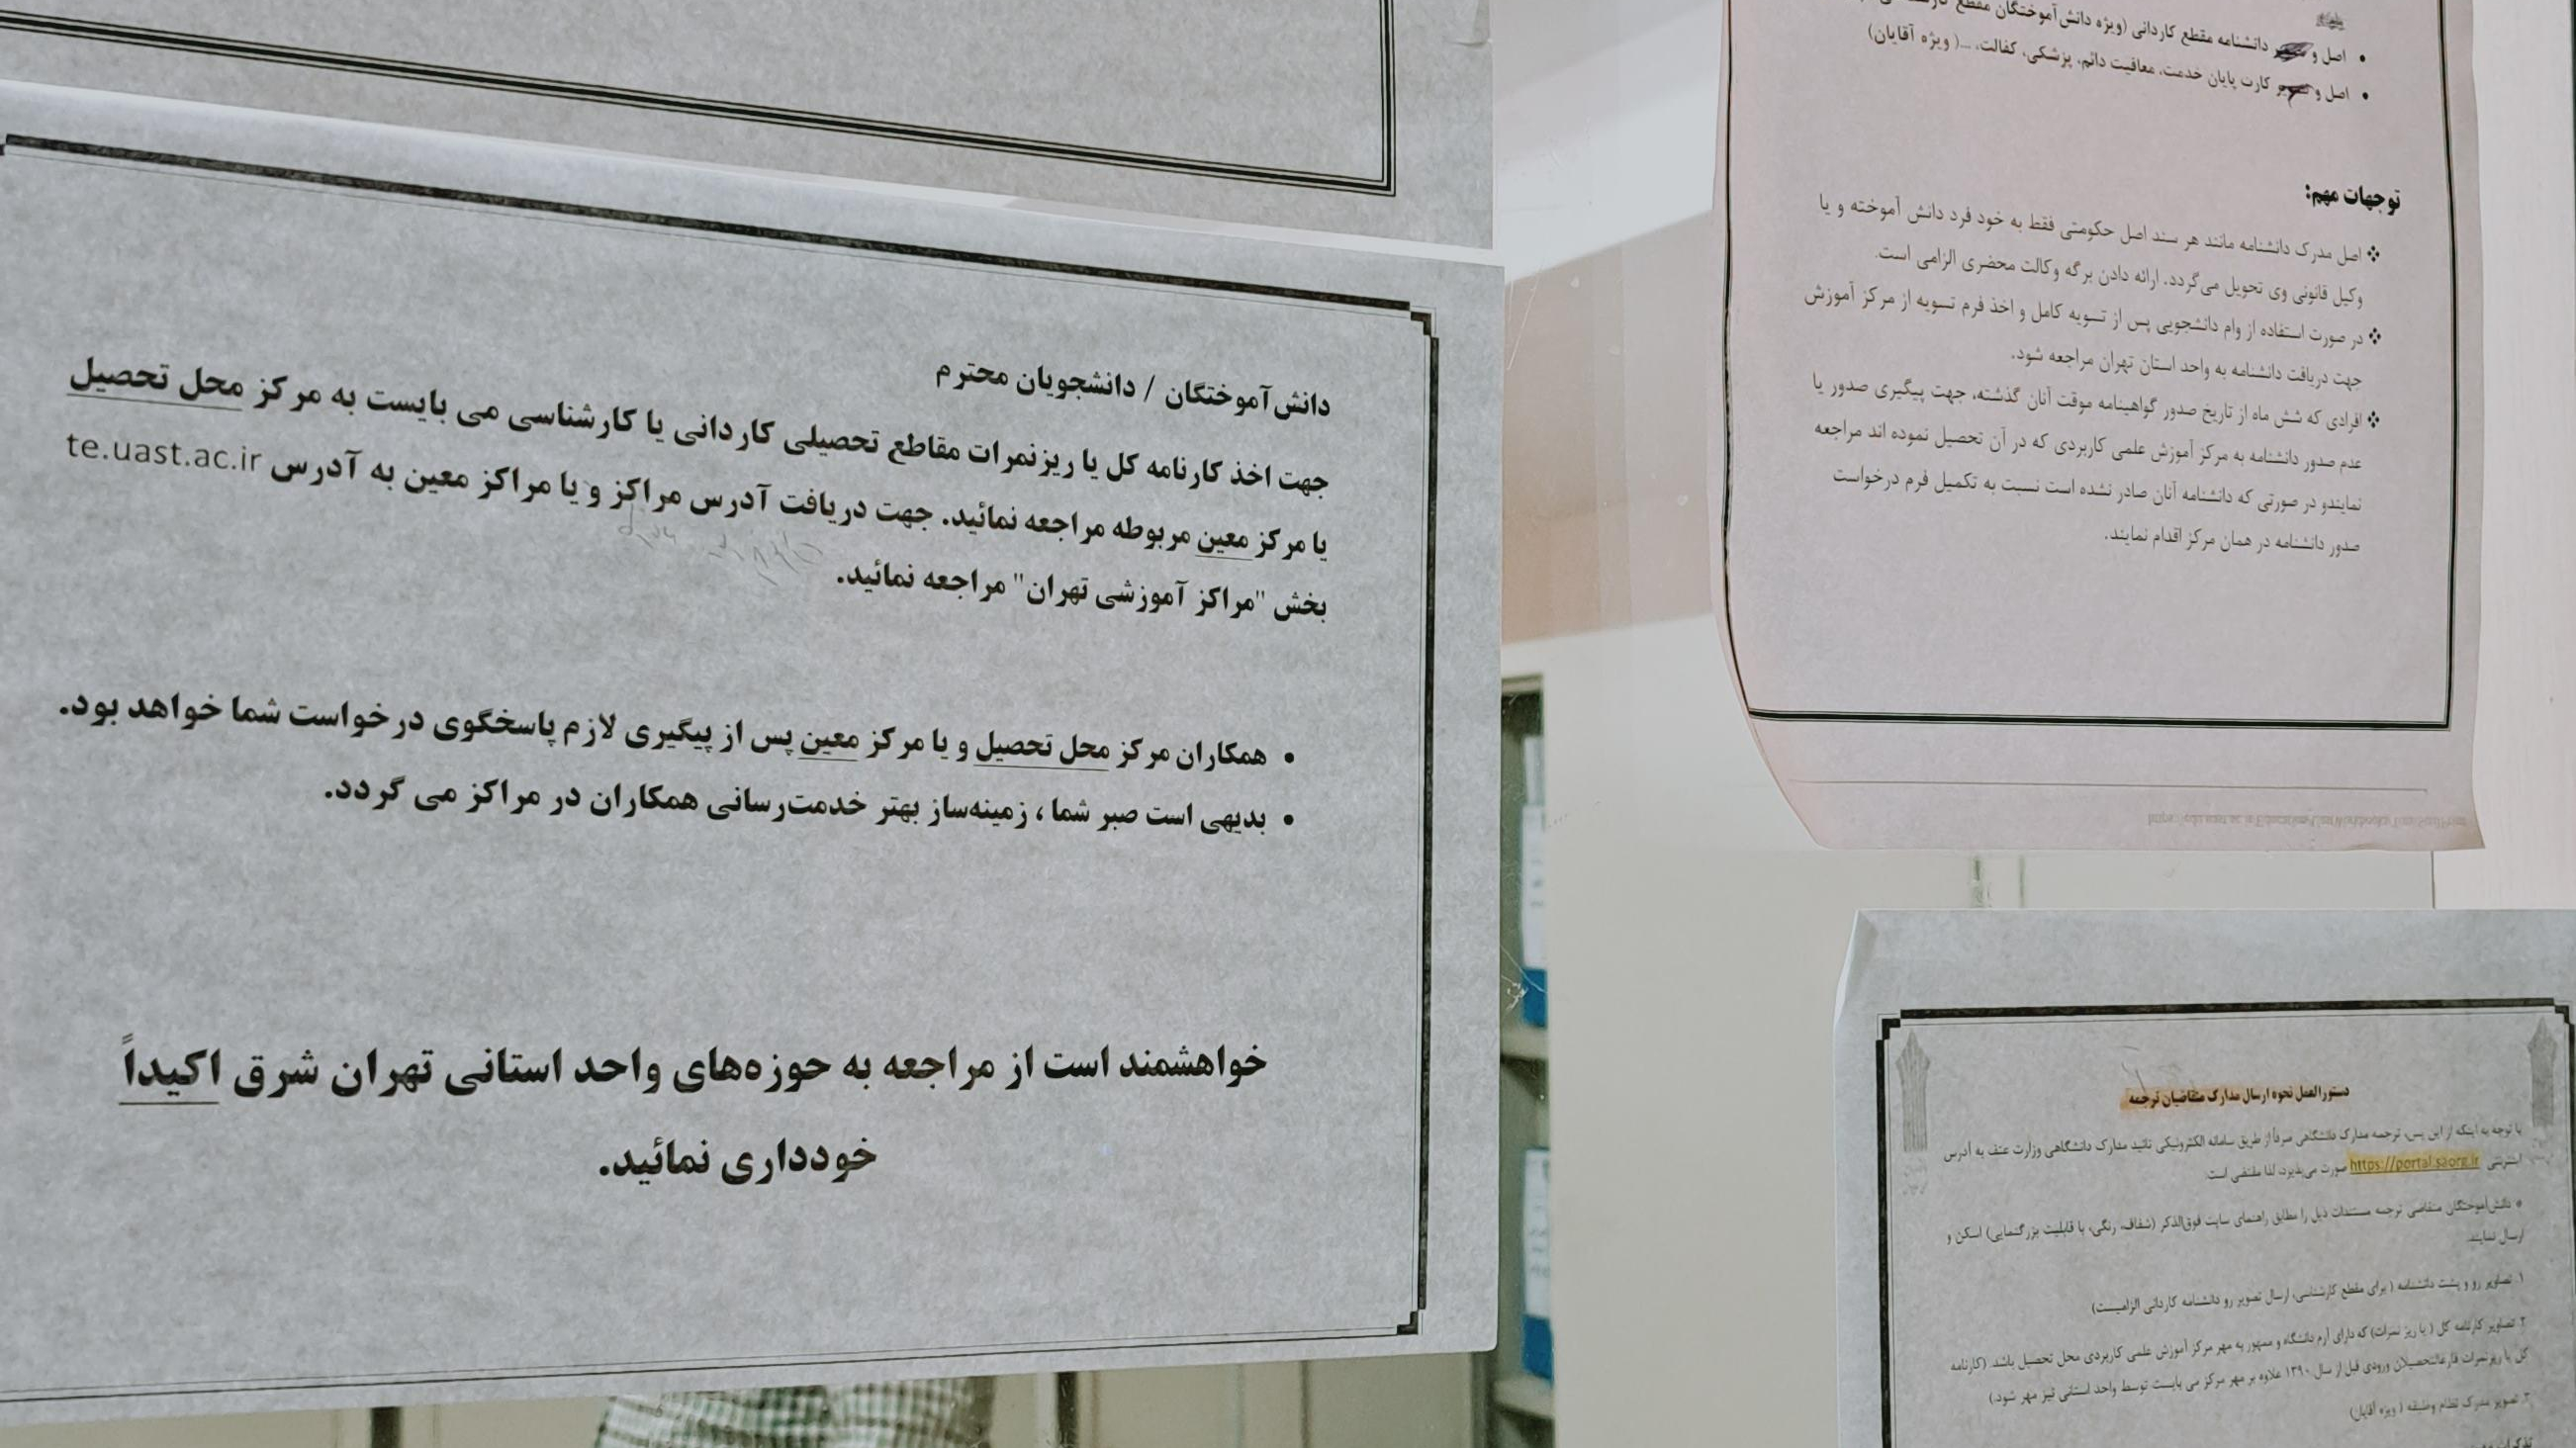 دانش‌آموختگان / دانشجویان محترم
جهت اخذ کارنامه کل یا ریزنمرات مقاطع تحصیلی کاردانی یا کارشناسی می بایست به مرکز محل تحصیل
یا مرکز معین مربوطه مراجعه نمائید. جهت دریافت آدرس مراکز و یا مراکز معین به آدرس te.uast.ac.ir
بخش "مراکز آموزشی تهران" مراجعه نمائید.
• همکاران مرکز محل تحصیل و یا مرکز معین پس از پیگیری لازم پاسخگوی درخواست شما خواهد بود.
• بدیهی است صبر شما ، زمینه‌ساز بهتر خدمت‌رسانی همکاران در مراکز می گردد.
خواهشمند است از مراجعه به حوزه‌های واحد استانی تهران شرق اکیداً
خودداری نمائید.
• اصل و دانشنامه مقطع کاردانی (ویژه دانش‌آموختگان مقطع
• اصل و کارت پایان خدمت، معافیت دائم، پزشکی، کفالت، ...( ویژه آقایان)
توجهات مهم:
❖ اصل مدرک دانشنامه مانند هر سند اصل حکومتی فقط به خود فرد دانش آموخته و یا
وکیل قانونی وی تحویل می‌گردد. ارائه دادن برگه وکالت محضری الزامی است.
❖ در صورت استفاده از وام دانشجویی پس از تسویه کامل و اخذ فرم تسویه از مرکز آموزش
جهت دریافت دانشنامه به واحد استان تهران مراجعه شود.
❖ افرادی که شش ماه از تاریخ صدور گواهینامه موقت آنان گذشته، جهت پیگیری صدور یا
عدم صدور دانشنامه به مرکز آموزش علمی کاربردی که در آن تحصیل نموده اند مراجعه
نمایندو در صورتی که دانشنامه آنان صادر نشده است نسبت به تکمیل فرم درخواست
صدور دانشنامه در همان مرکز اقدام نمایند.
دستورالعمل نحوه ارسال مدارک متقاضیان ترجمه
با توجه به اینکه از این پس، ترجمه مدارک دانشگاهی صرفاً از طریق سامانه الکترونیکی تائید مدارک دانشگاهی وزارت عتف به آدرس
اینترنتی https://portal.saorg.ir صورت می‌پذیرد، لذا مقتضی است:
* دانش‌آموختگان متقاضی ترجمه مستندات ذیل را مطابق راهنمای سایت فوق‌الذکر (شفاف، رنگی، با قابلیت بزرگنمایی) اسکن و
ارسال نمایند.
۱. تصاویر رو و پشت دانشنامه ( برای مقطع کارشناسی، ارسال تصویر رو دانشنامه کاردانی الزامیست)
۲. تصاویر کارنامه کل ( یا ریز نمرات) که دارای آرم دانشگاه و ممهور به مهر مرکز آموزش علمی کاربردی محل تحصیل باشد. (کارنامه
کل یا ریزنمرات فارغ‌التحصیلان ورودی قبل از سال ۱۳۹۰ علاوه بر مهر مرکز می بایست توسط واحد استانی نیز مهر شود.)
۳. تصویر مدرک نظام وظیفه ( ویژه آقایان)